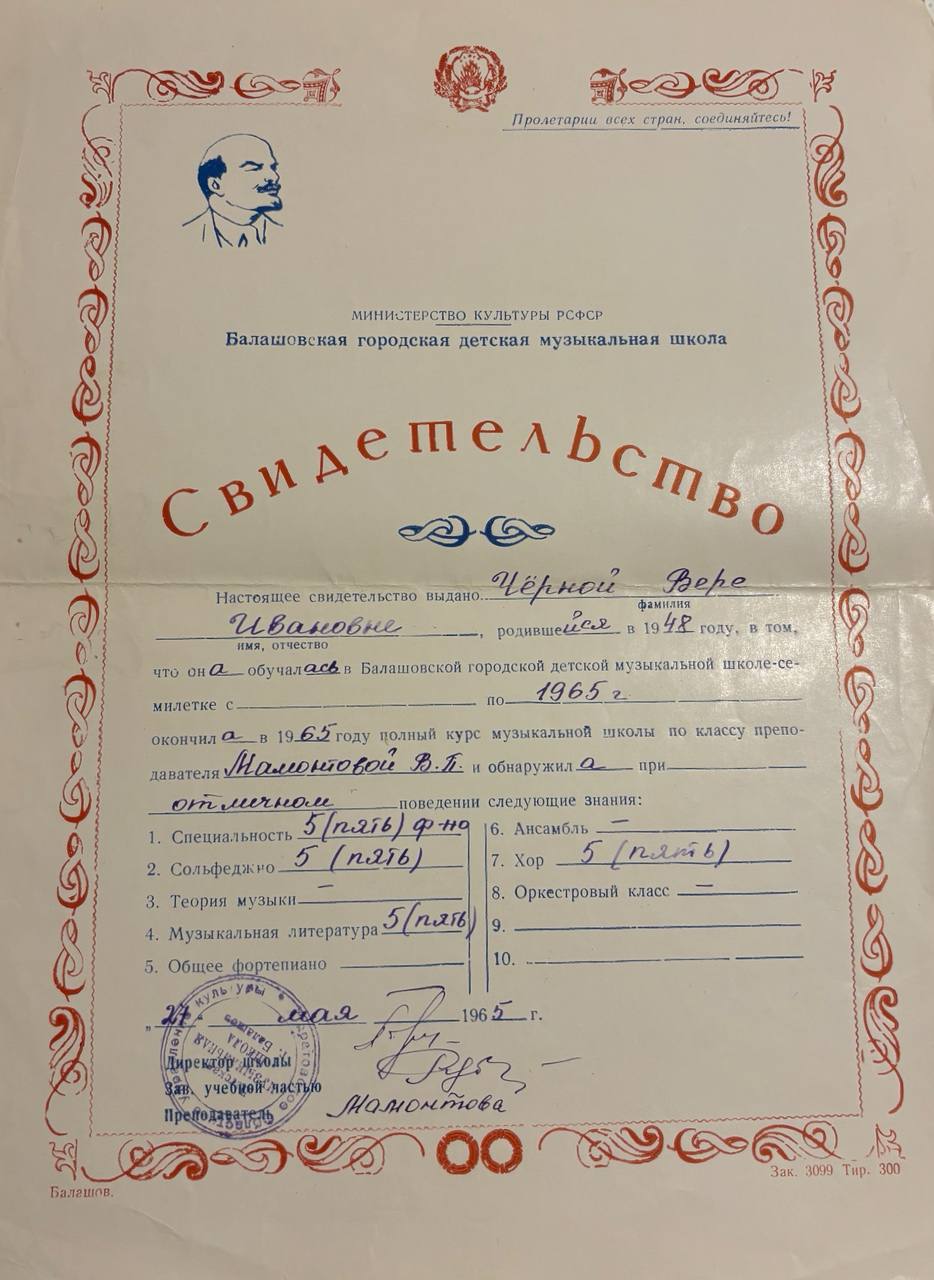 Пролетарии всех стран, соединяйтесь!
МИНИСТЕРСТВО КУЛЬТУРЫ РСФСР
Балашовская городская детская музыкальная школа
Свидетельство
Настоящее свидетельство выдано Чёрной Вере
фамилия
Ивановне, родившейся в 1948 году, в том,
имя, отчество
что она обучалась в Балашовской городской детской музыкальной школе-се-
милетке с по 1965 г
окончила в 1965 году полный курс музыкальной школы по классу препо-
давателя Мамонтовой В.П. и обнаружила при
отличном поведении следующие знания:
1. Специальность 5 (пять) ф-но
2. Сольфеджио 5 (пять)
3. Теория музыки –
4. Музыкальная литература 5 (пять)
5. Общее фортепиано
6. Ансамбль –
7. Хор 5 (пять)
8. Оркестровый класс –
9.
10.
„27" мая 1965 г.
Директор школы
Зав. учебной частью
Преподаватель Мамонтова
Балашов.
Зак. 3099 Тир. 300